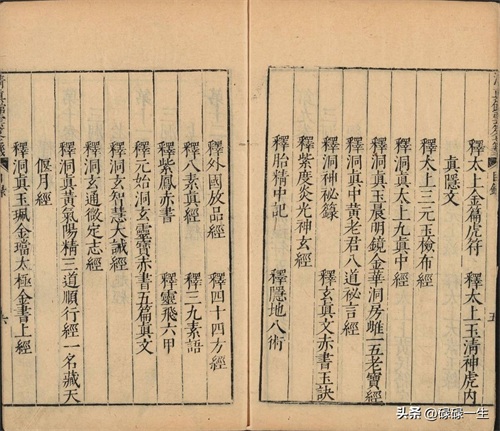 釋太上金篇虎符　釋太上玉清神虎内
真隱文
釋大上三元玉檢布經
釋洞真太上九真中經
釋洞真玉晨明鏡金華洞房雌一五老寶經
釋洞真中黃老君八道祕言經
釋洞神祕籙　釋玄真文赤書玉訣
釋紫度炎光神玄經
釋胎精中記　釋隱地八術
五
釋外國放品經　釋四十四方經
釋八素真經　釋三九素語
釋紫鳳赤書　釋靈飛六甲
釋元始洞玄靈寶赤書五篇真文
釋洞玄智慧大誡經
釋洞玄通微定志經
釋洞真黃氣陽精三道順行經一名藏天
偃月經
釋洞真玉珮金璫太極金書上經
目錄
六
头条 @碌碌一生